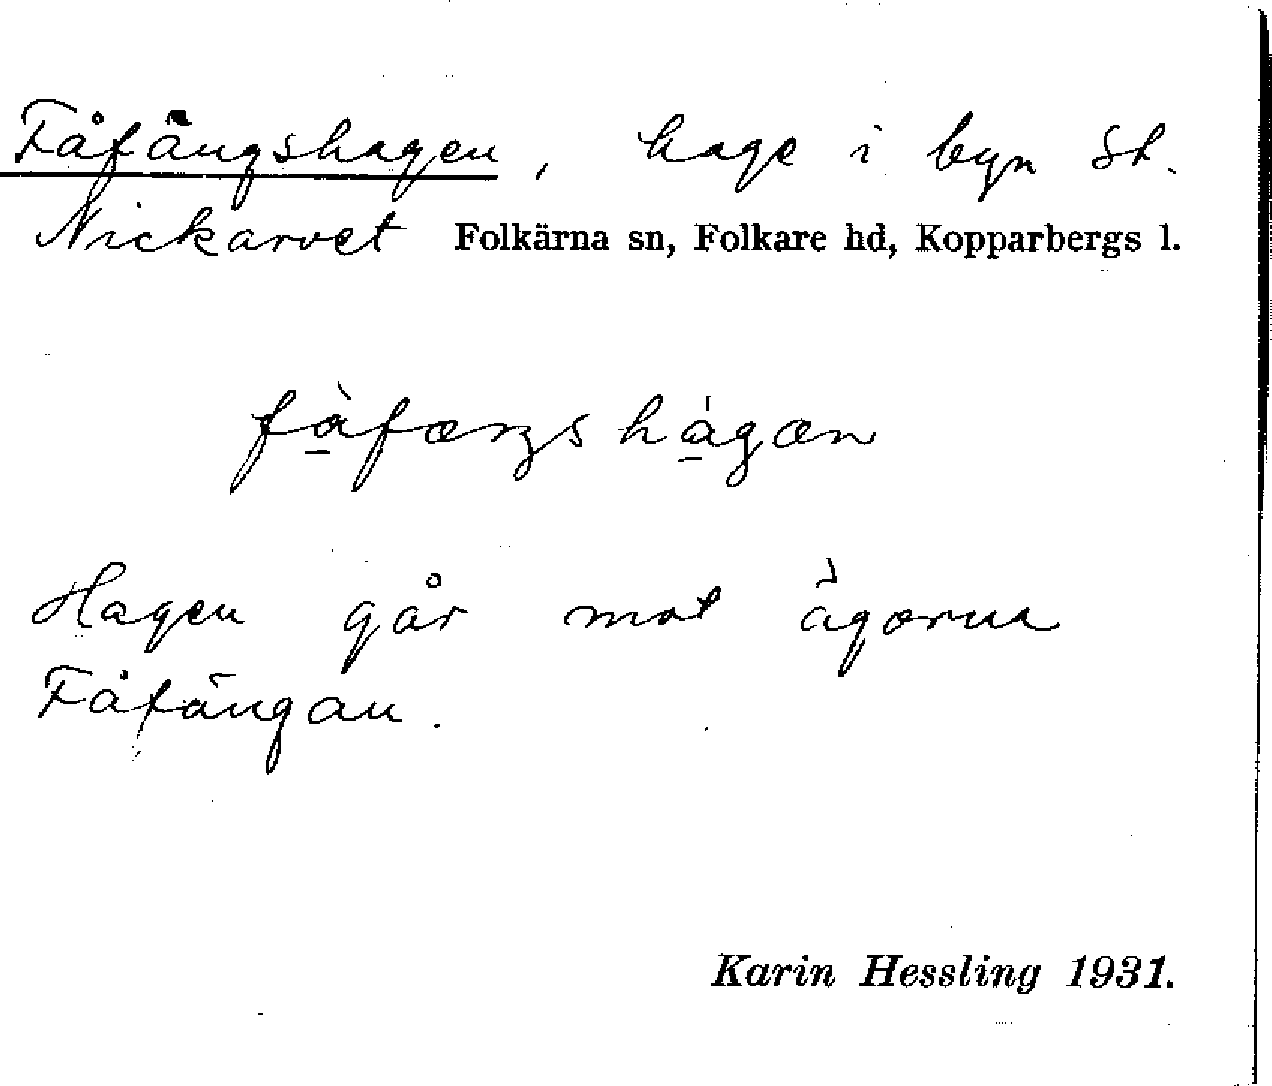 Fåfängshagen, hage i byn St.
Nickarvet Folkärna sn, Folkare hd, Kopparbergs l.
få̀fæŋshágæn
Hagen går mot ägorna
Fåfängan.
Karin Hessling 1931.